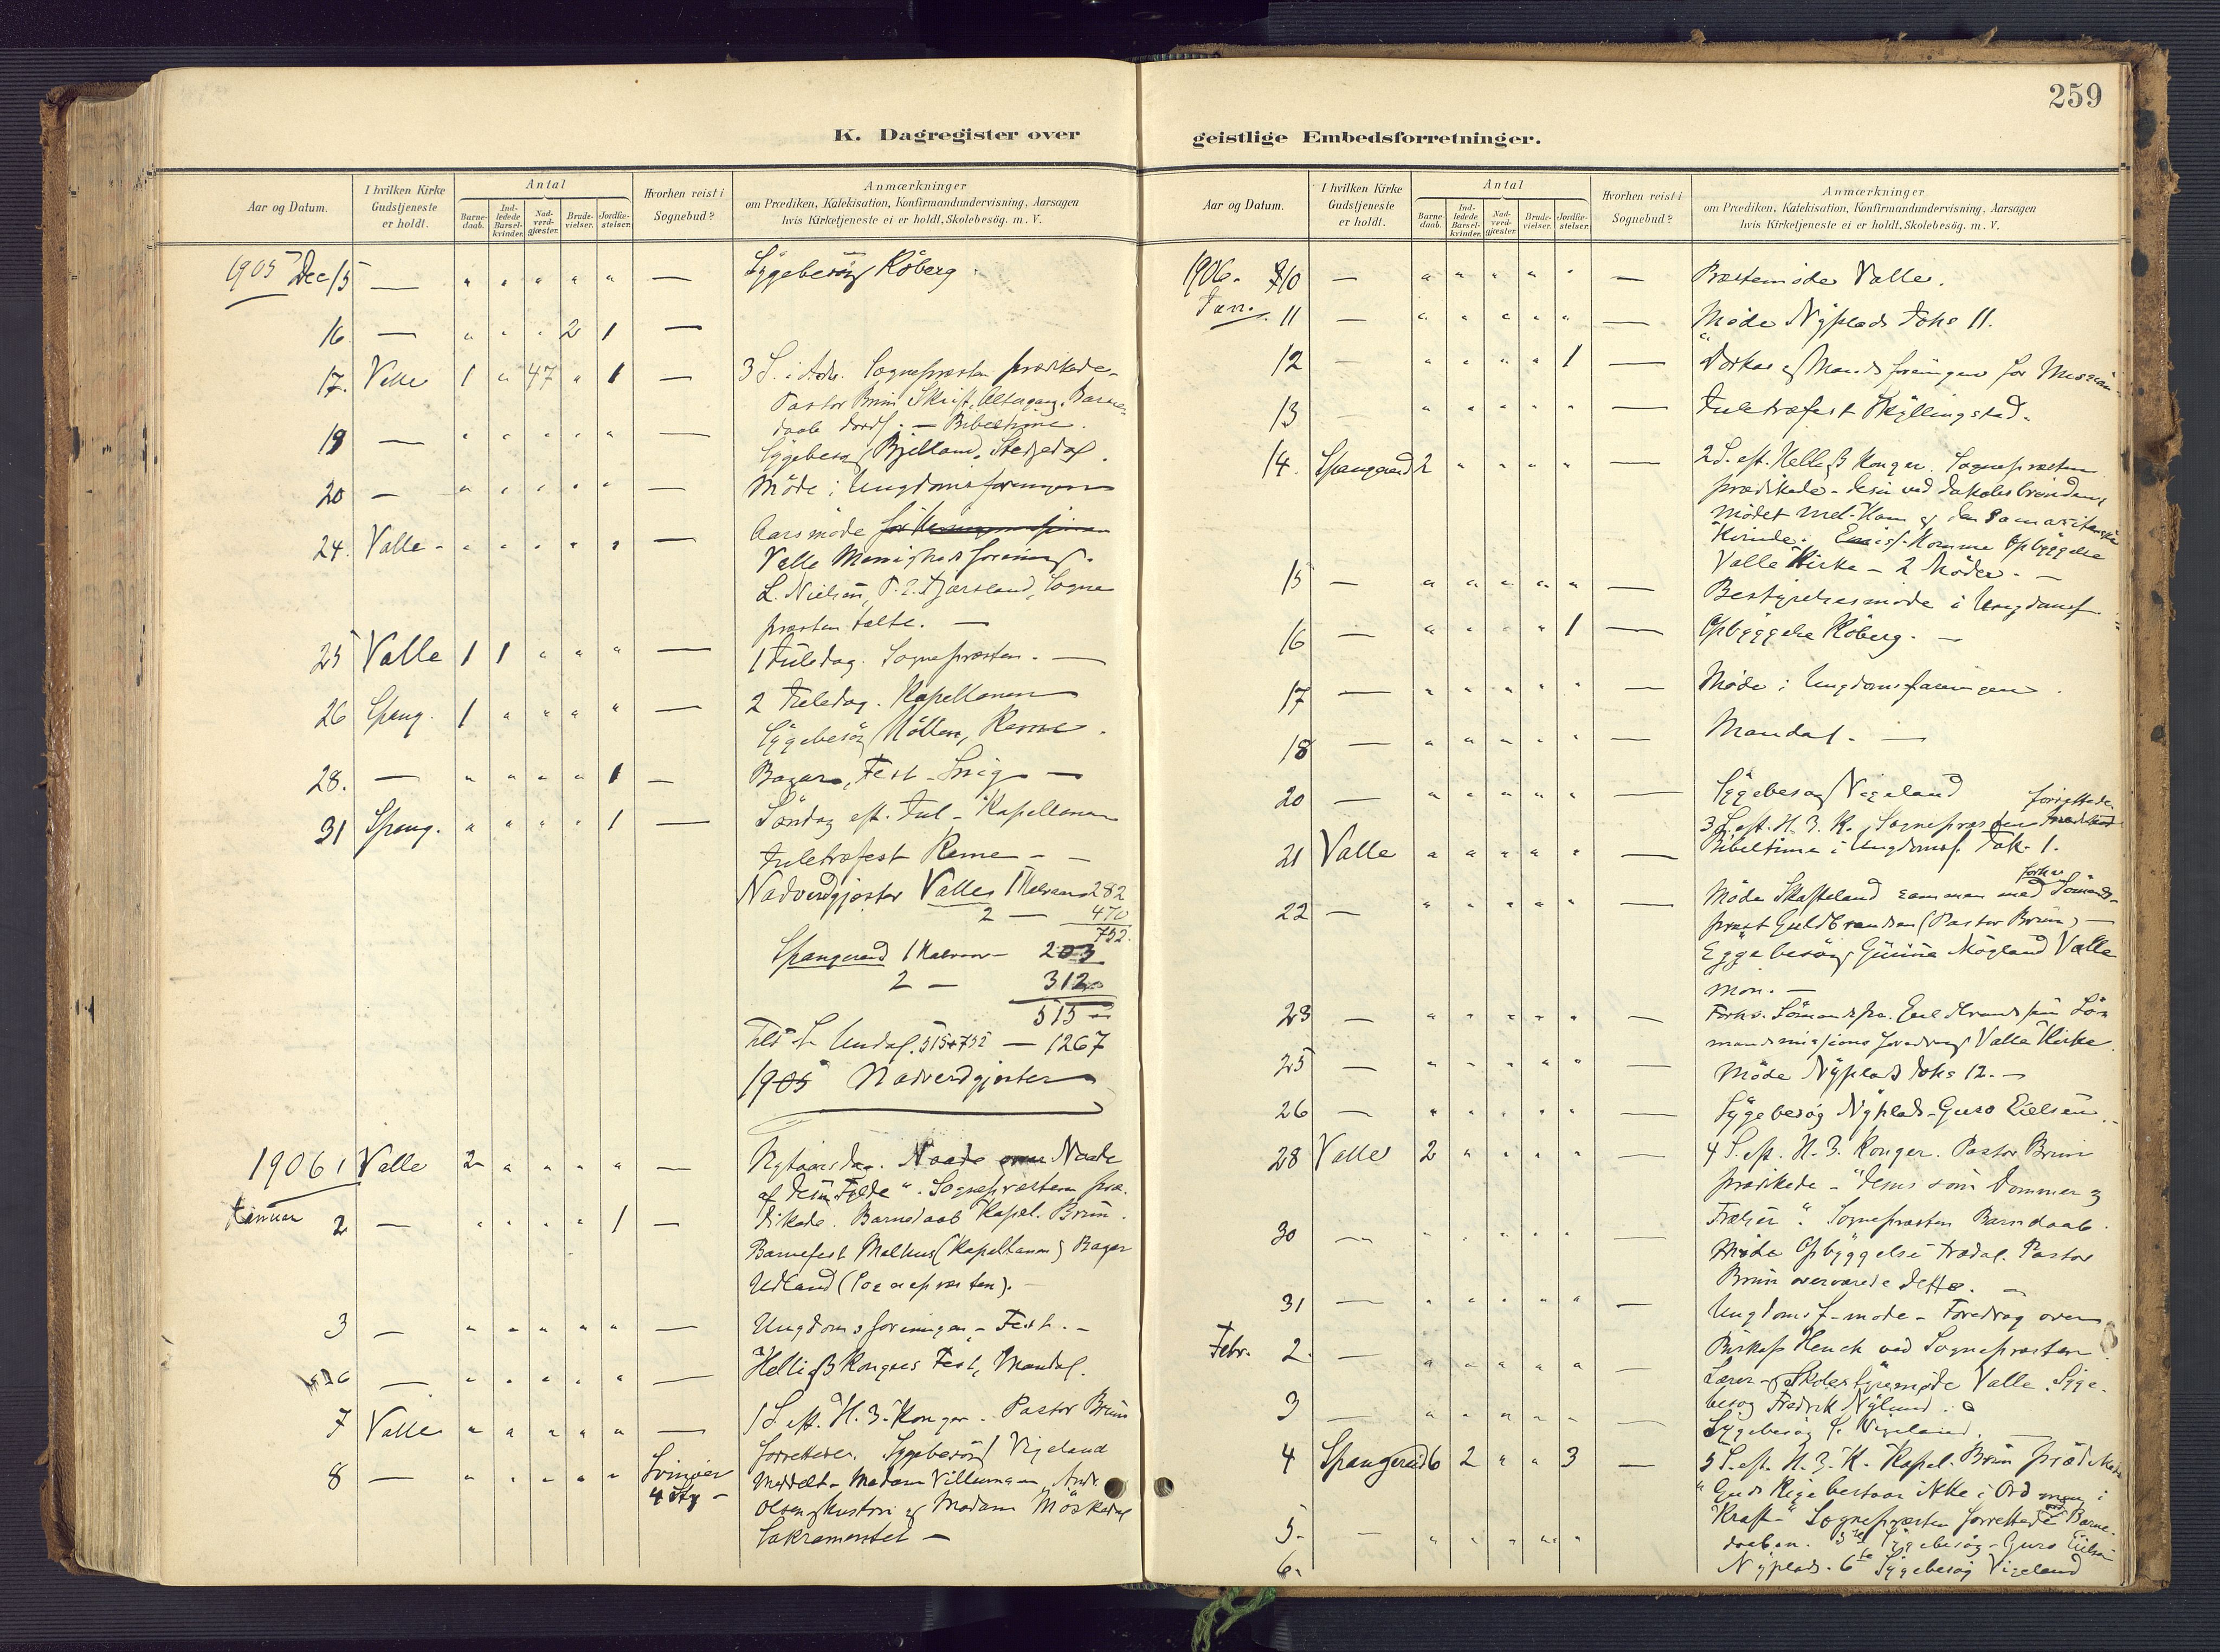 259
K. Dagregister over geistlige Embedsforretninger.
Aar og Datum. I hvilken Kirke Gudstjeneste er holdt. Antal Barnedaab. Indledede Barselkvinder. Nadverdgjæster. Brudevielser. Jordfæstelser. Hvorhen reist i Sognebud? Anmærkninger om Prædiken, Katekisation, Konfirmandundervisning, Aarsagen hvis Kirketjeneste ei er holdt, Skolebesög. m. V.
1905 Dec 15 — " " " " " — Sygebesög Köberg
16. — " " " 2 1 —
17. Valle 1 " 47 " 1 — 3 S. i Adv. Sognepræsten prædikede -
Pastor Brun Skrift. Altergang. Barne-
daab — Bibeltime.
19 — " " " " " — Sygebesög Bjelland,
20 — " " " " " — Möde i Ungdomsforeningen
24. Valle - " " " " " — Aarsmöde
Valle Menighedsforening.
L. Nielsen, Sogne
præsten talte. —
25 Valle 1 1 " " " — 1 Juledag. Sognepræsten. —
26 Spang. 1 " " " " — 2 Juledag. Kapellanen
Sygebesög Möllen, Remme.
28. — " " " " 1 — Bazar, Fest - Snig —
31 Spang. " " " " 1 — Söndag eft. Jul - Kapellanen
Juletræfest Reme - —
Nadverdgjæster Valle 1 Halvaar 282
2 — 470
752.
Spangereid 1 Halvaar — 203
2 — 312
515
Undal. 515+752 — 1267
1905 Nadverdgjæster
1906 1 Valle 2 " " " " — Nytaarsdag. Naade over Naade
af Fylde". Sognepræsten præ-
Januar 2 — " " " " 1 — dikede. Barnedaab Kapel. Brun.
Barnefest Melhus (Kapellanen) Bazar
Udland (Sognepræsten). —
3 — " " " " " — Ungdomsforeningen - Fest. -
6 — " " " " " — Hellig 3 Kongers Fest, Mandal.
7 Valle " " " " " — 1 S. eft. H. 3. Konger. Pastor Brun
forrettede. Sygebesög Vigeland
8 — " " " " " Svinöer 4 Meddelt - Madam Villumsen, Andr.
Olsen Hustru og Madam
Sakramentet —
Aar og Datum. I hvilken Kirke Gudstjeneste er holdt. Antal Barnedaab. Indledede Barselkvinder. Nadverdgjæster. Brudevielser. Jordfæstelser. Hvorhen reist i Sognebud? Anmærkninger om Prædiken, Katekisation, Konfirmandundervisning, Aarsagen hvis Kirketjeneste ei er holdt, Skolebesög. m. V.
1906. 10 — " " " " " — Præstemöde Valle.
Jan. 11 — " " " " " — Möde Nyplads Johs 11.
12 — " " " " 1 — Dorkas og Mandsforeningen for Mission
13 — " " " " " — Juletræfest Skyllingstad.
14. Spangereid 2 " " " " — 2 S. eft. Hellig 3 Konger. Sognepræsten
prædikede - Jesu ved Jakobsbrönden,
Mödet mel. Ham og den Samaritanske
Kvinde. Opbyggelse
Valle Kirke - 2 Möder. —
15 — " " " " " — Bestyrelsesmöde i Ungdomsf.
16 — " " " " 1 — Opbyggelse Köberg. —
17 — " " " " " — Möde i Ungdomsforeningen.
18 — " " " " " — Mandal. —
20 — " " " " " — Sygebesög Vigeland
21 Valle " " " " " — 3 S. eft. H. 3. K. Sognepræsten forrettede.
Bibeltime i Ungdomsf. Jak. 1.
22 — " " " " " — Möde Skofteland sammen med forhv. Sömands-
præst Guldbrandsen (Pastor Brun) —
Sygebesög Gurine Mögland Valle
mon. —
23 — " " " " " — Forhv. Sömandspr. Guldbrandsen Sö-
mandsmissions foredrag Valle Kirke.
25 — " " " " " — Möde Nyplads Johs 12. —
26 — " " " " " — Sygebesög Nyplads - Guro Eielsen.
28 Valle 2 " " " " — 4 S. eft. H. 3. Konger. Pastor Brun
prædikede - "Jesus som Dommer og
Frelser". Sognepræsten Barnedaab.
30 — " " " " " Möde Opbyggelse Trædal. Pastor
Brun overværede dette. —
31 — " " " " " — Ungdomsf-möde - Foredrag over
Biskop Heuch ved Sognepræsten.
Febr. 2. — " " " " " — Lærer- og Skolestyremöde Valle. Syge-
besög Fredrik Nylund.
3 — " " " " " — Sygebesög Vigeland. —
4 Spangereid 6 2 " " 3 — 5 S. eft. H. 3. K. Kapel. Brun prædikede
"Guds Rige bestaar ikke i Ord men i
Kraft". Sognepræsten forrettede Barne-
5. — " " " " " daaben. 5te Sygebesög - Guro Eielsen
6. Nyplads. 6te Sygebesög Vigeland